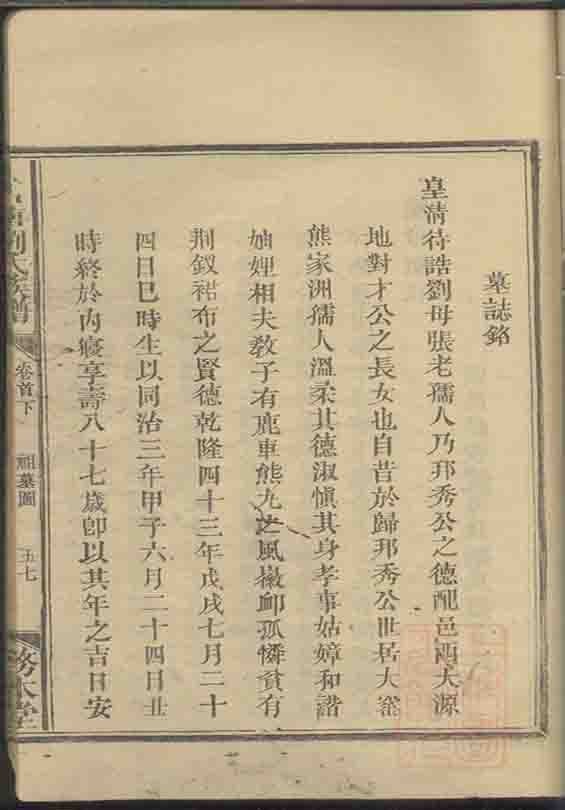 墓誌銘
皇清待誥劉母張老孺人乃邦秀公之德配邑西大源
地對才公之長女也自昔於歸邦秀公世居大窰
熊家洲孺人溫柔其德淑愼其身孝事姑嫜和諧
妯娌相夫敎子有鹿車熊丸之風徽卹孤憐貧有
荆釵裙布之賢德乾隆四十三年戊戌七月二十
四日巳時生以同治三年甲子六月二十四日丑
時終於內寢享壽八十七歲卽以其年之吉日安
劉氏族譜
卷首下
祖墓圖
五七
務本堂